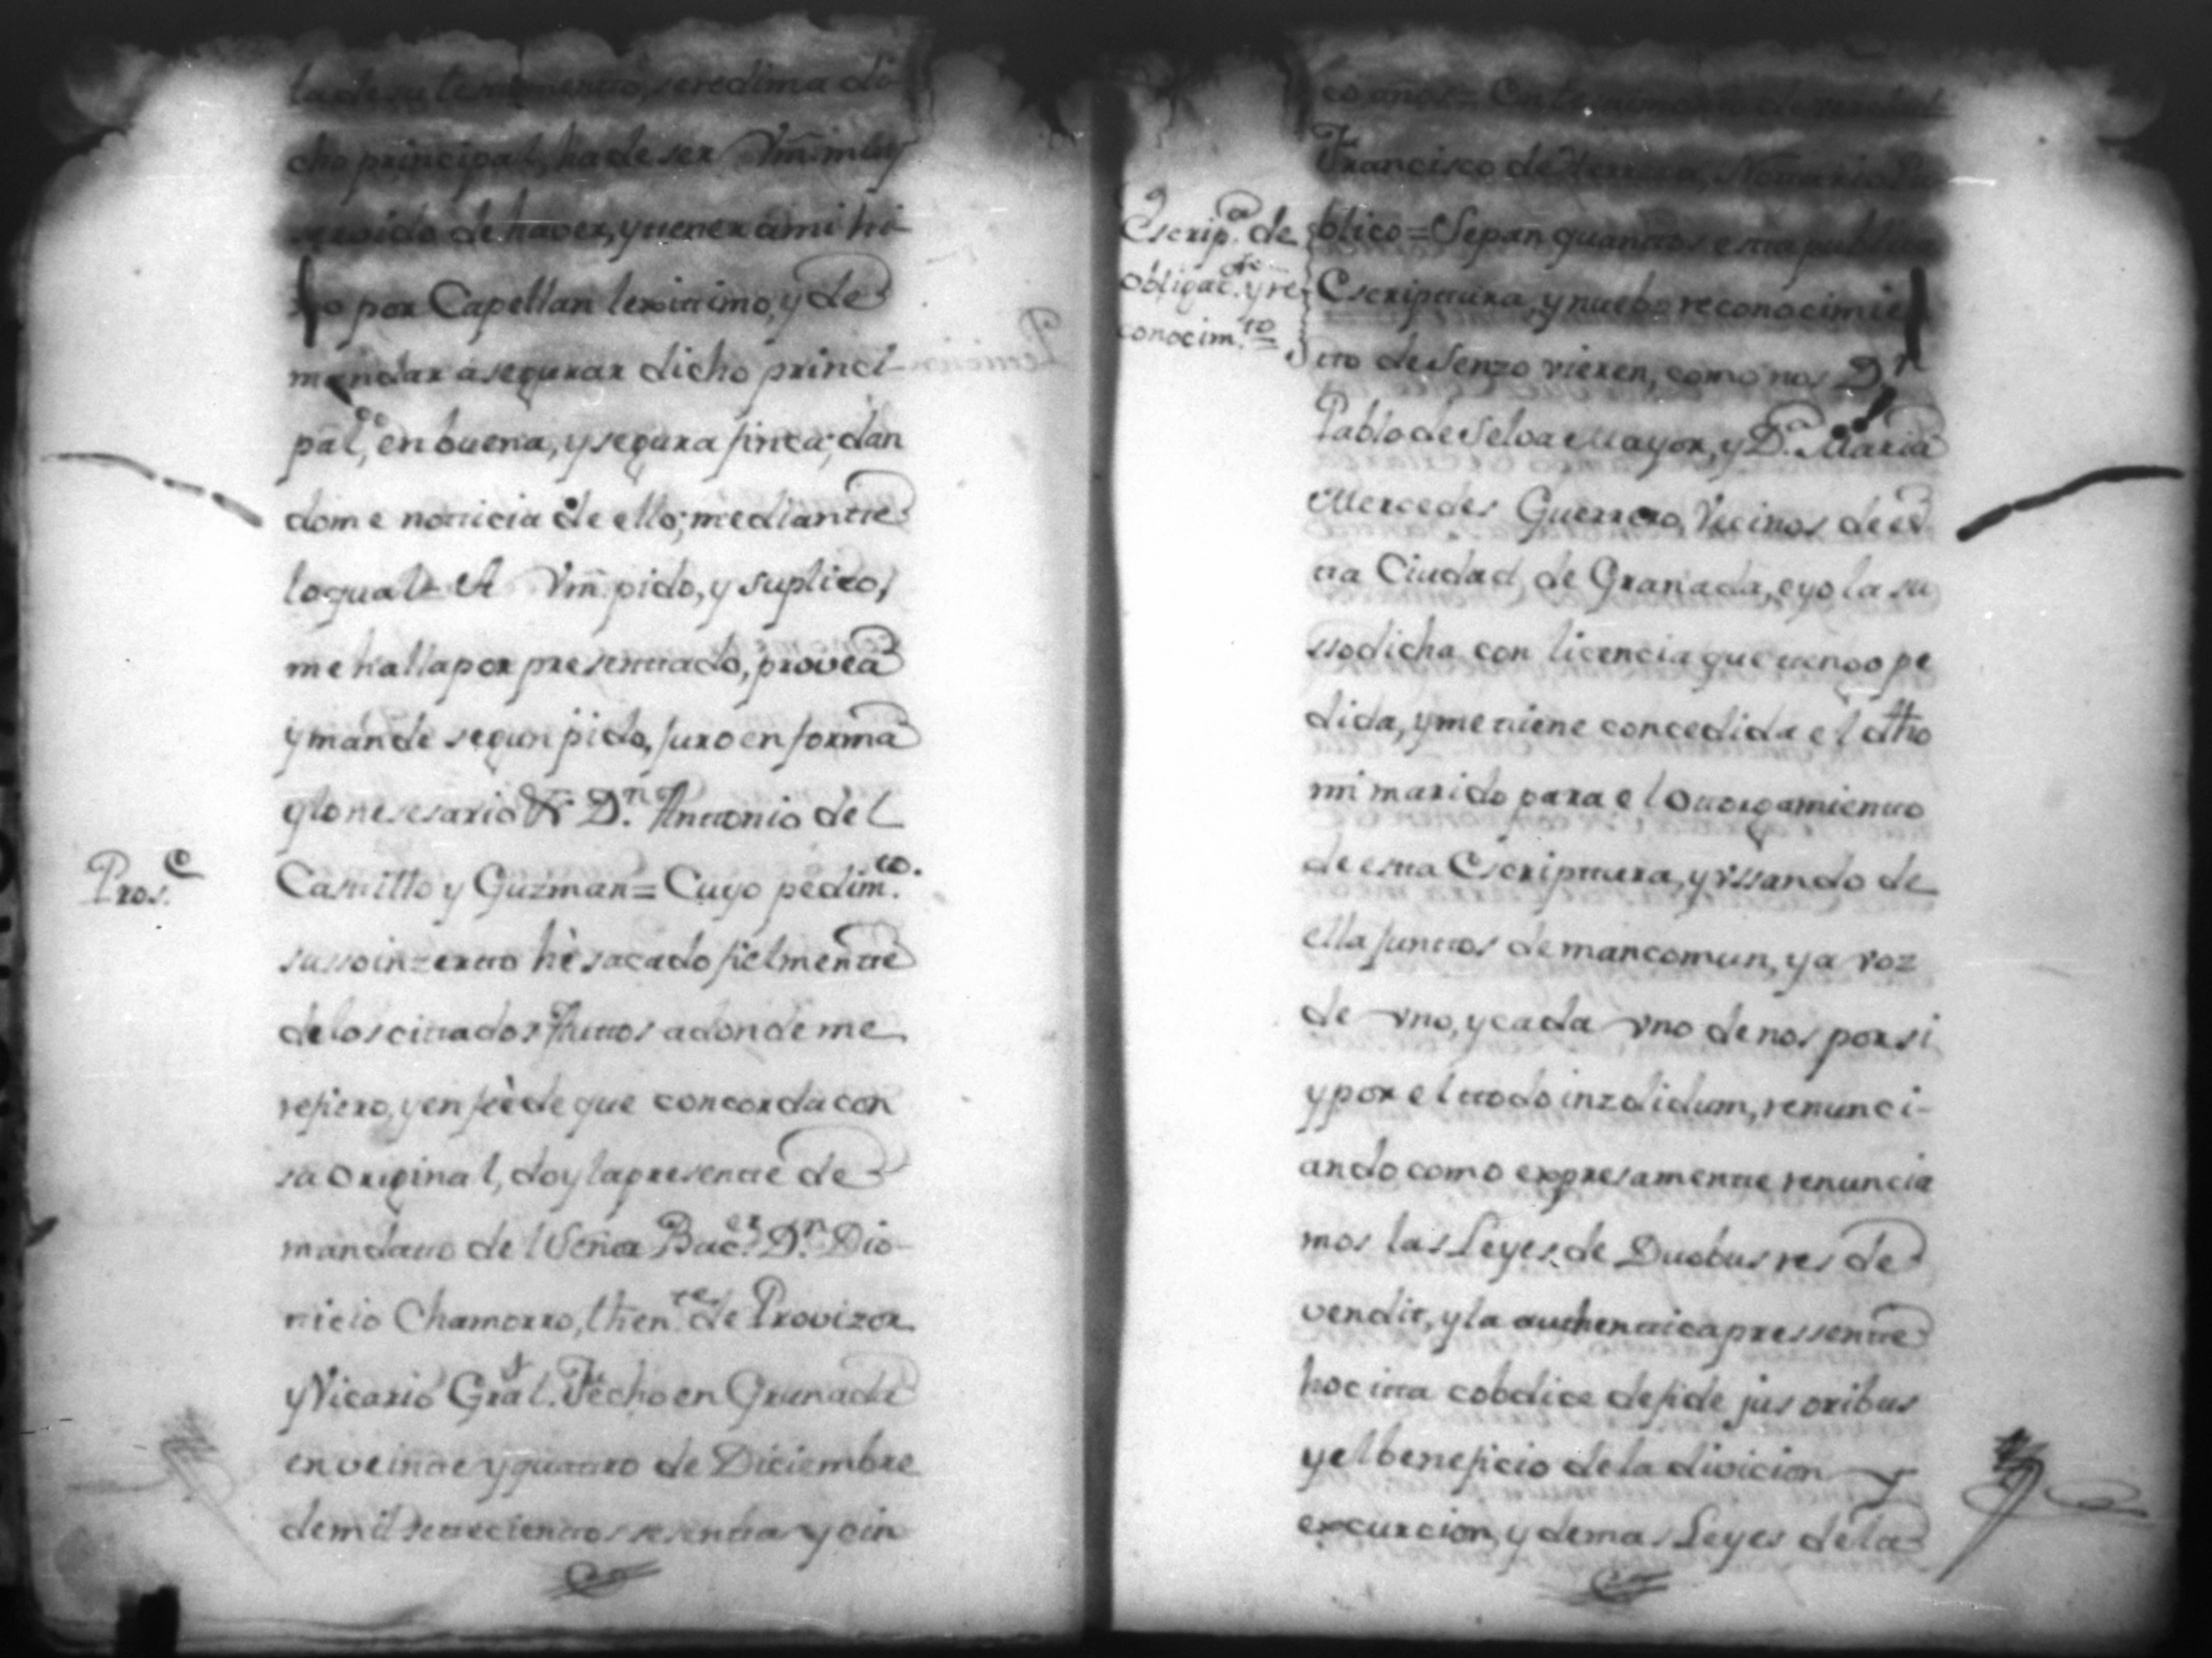 la de su testamento, se redima di
cho principal, ha de ser Vm̃. muy
servido de haver, y tener â mi hi
jo por Capellan lexitimo, y de
mandar asegurar dicho princi-
pal, en buena, y segura finca; dan
dome noticia de ello; mediante
lo qual = A Vm̃. pido, y suplico,
me halla por presentado, provea
y mande segun pido, juro en forma
y lo nesesario &. D.ⁿ Antonio del
Pros.ᵉ
Castillo y Guzman = Cuyo pedim.ᵗᵒ
susso inzerto hè sacado fielmente
de los citados Autos a donde me
refiero, y en feè de que concorda con
su Original, doy la presente de
mandato del Señor Bac.ᵉʳ D.ⁿ Dio-
nicio Chamorro, then.ᵗᵉ de Provizor
y Vicario Gral. Fecho en Granada
en veinte y quatro de Diciembre
de mil setecientos sesenta y cin
co años = En testimonio de verdad
Francisco de Herrera, Notario Pu
Escrip.ᵃ de
obligac.ᵒⁿ y re
conocim.ᵗᵒ =
blico = Sepan quantos esta publica
Escriptura, y nuebo reconocimie
tto de Senzo vieren, como nos D.ⁿ
Pablo de Selva Mayor, y D.ᵃ Maria
Mercedes Guerrero, Vecinos de es
ta Ciudad de Granada, e yo la su
ssodicha con licencia que tengo pe
dida, y me tiene concedida el dho
mi marido para el Otorgamiento
de esta Escriptura, y vssando de
ella juntos de mancomun, y a voz
de vno, y cada vno de nos por si
y por el todo inzolidum, renunci-
ando como expresamente renuncia
mos las Leyes de Duobus res de
vendit, y la authentica pressente
hoc itta cobdice defide jus oribus
y el beneficio de la divicion y
excurcion, y demas Leyes de la